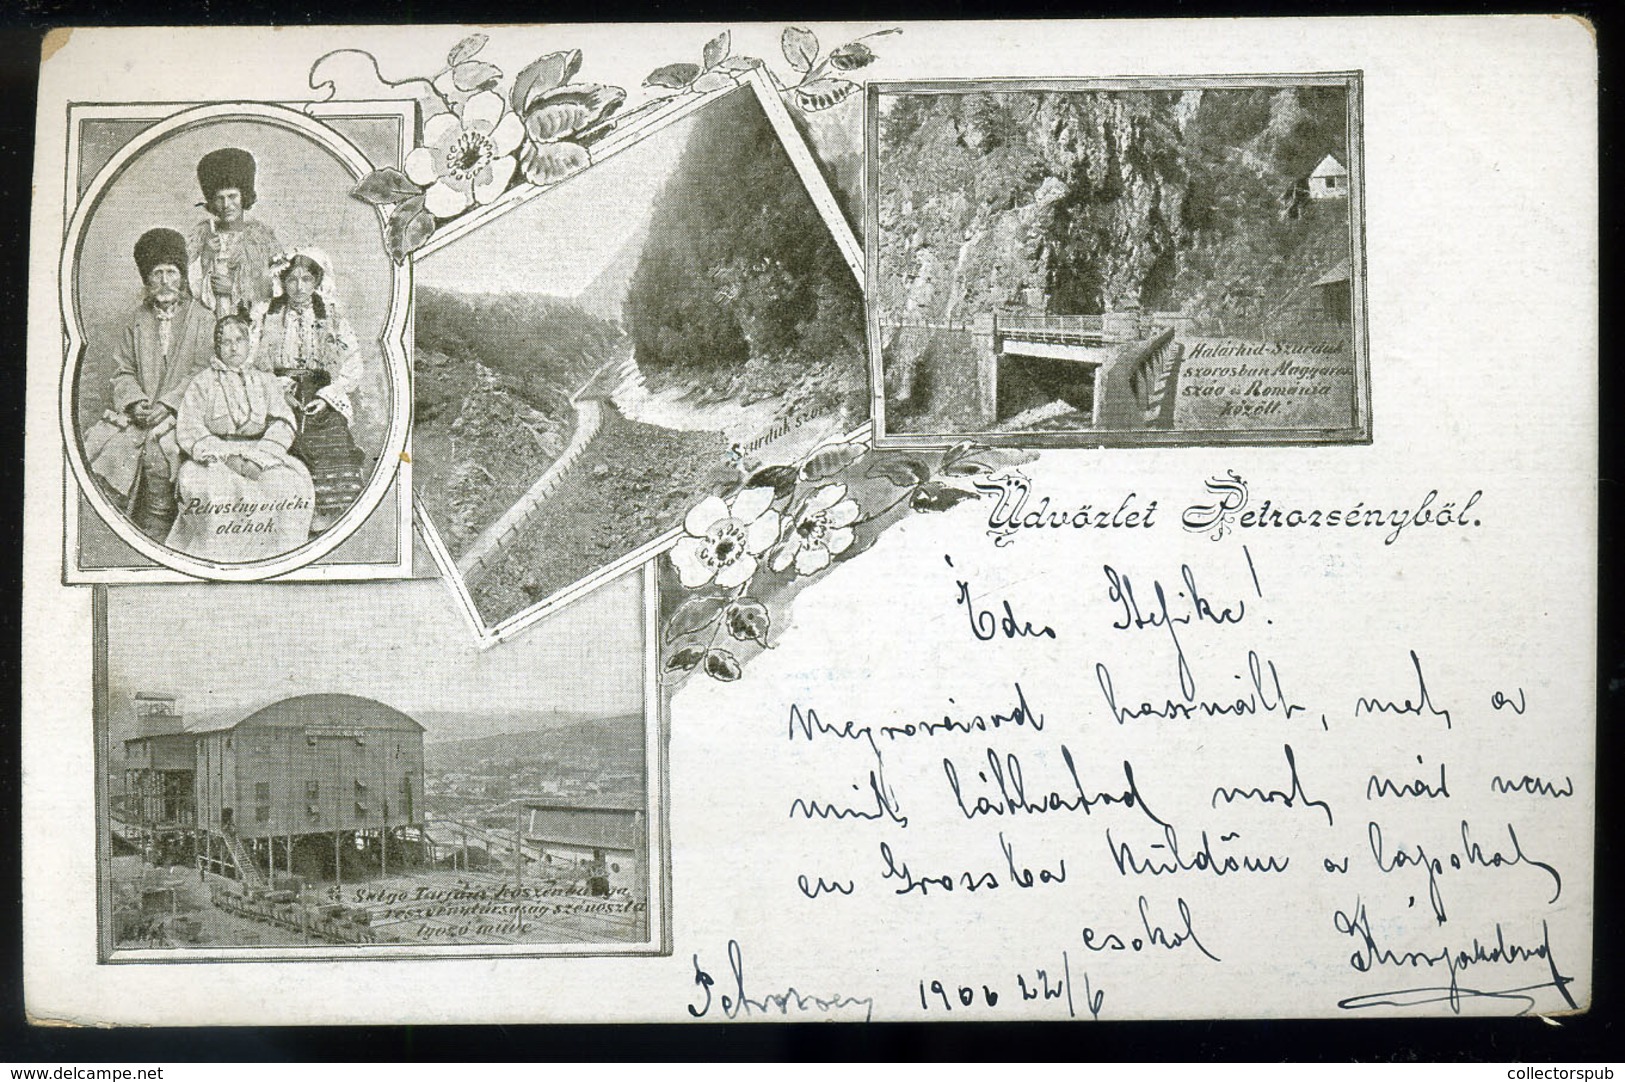 Petrosény vidéki
oláhok.
Szurduk szoros
Halárhid-Szurduk
szorosban Magyaror
szág és Románia
között."
Üdvözlet Petrozsényböl.
Salgó Tarjáni köszénbánya
reszvénytársaság szénoszta
lyozó müve
Édes Stefike!
használt, mert a
láthatod most már nem
en Grossba küldöm a lapokat
csokol
Petrozseny 1900 22/6
www.delcampe.net
collectorspub